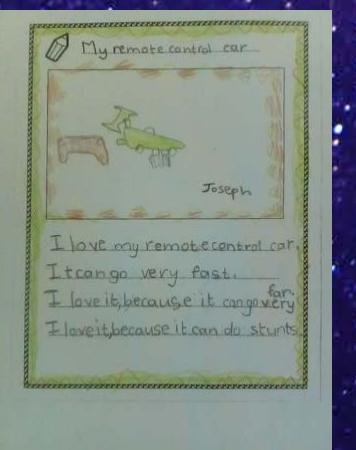 My remote control car
Joseph
I love my remote control car.
It can go very fast.
I love it, because it can go very far.
I love it, because it can do stunts.